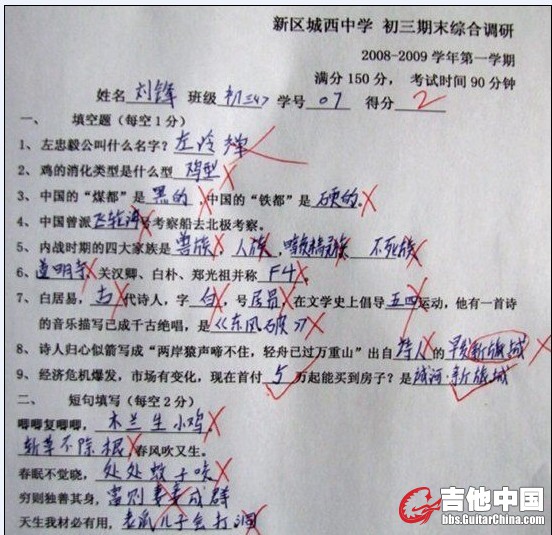 新区城西中学 初三期末综合调研
2008-2009学年第一学期
满分150分, 考试时间90分钟
姓名 刘锋 班级 初三<4> 学号 07 得分 2
一、 填空题(每空1分)
1、左忠毅公叫什么名字?左冷禅
2、鸡的消化类型是什么型 鸡型
3、中国的“煤都”是 黑的 ,中国的“铁都”是 硬的。
4、中国曾派飞轮海号考察船去北极考察。
5、内战时期的四大家族是兽族、人族、暗夜精灵族 不死族
6、道明寺、关汉卿、白朴、郑光祖并称 F4
7、白居易, 古 代诗人,字 白 ,号居易,在文学史上倡导五四运动,他有一首诗
的音乐描写已成千古绝唱,是《东风破》
8、诗人归心似箭写成“两岸猿声啼不住,轻舟已过万重山”出自 诗人 的 新旅城
9、经济危机爆发,市场有变化,现在首付 5 万起能买到房子?是 河·新旅城
二、 短句填写(每空2分)
唧唧复唧唧, 木兰生小鸡。
斩草不除根,春风吹又生。
春眠不觉晓, 处处蚊子咬
穷则独善其身,富则妻妾成群
天生我材必有用,老鼠儿子会打洞
吉他中国
bbs.GuitarChina.com